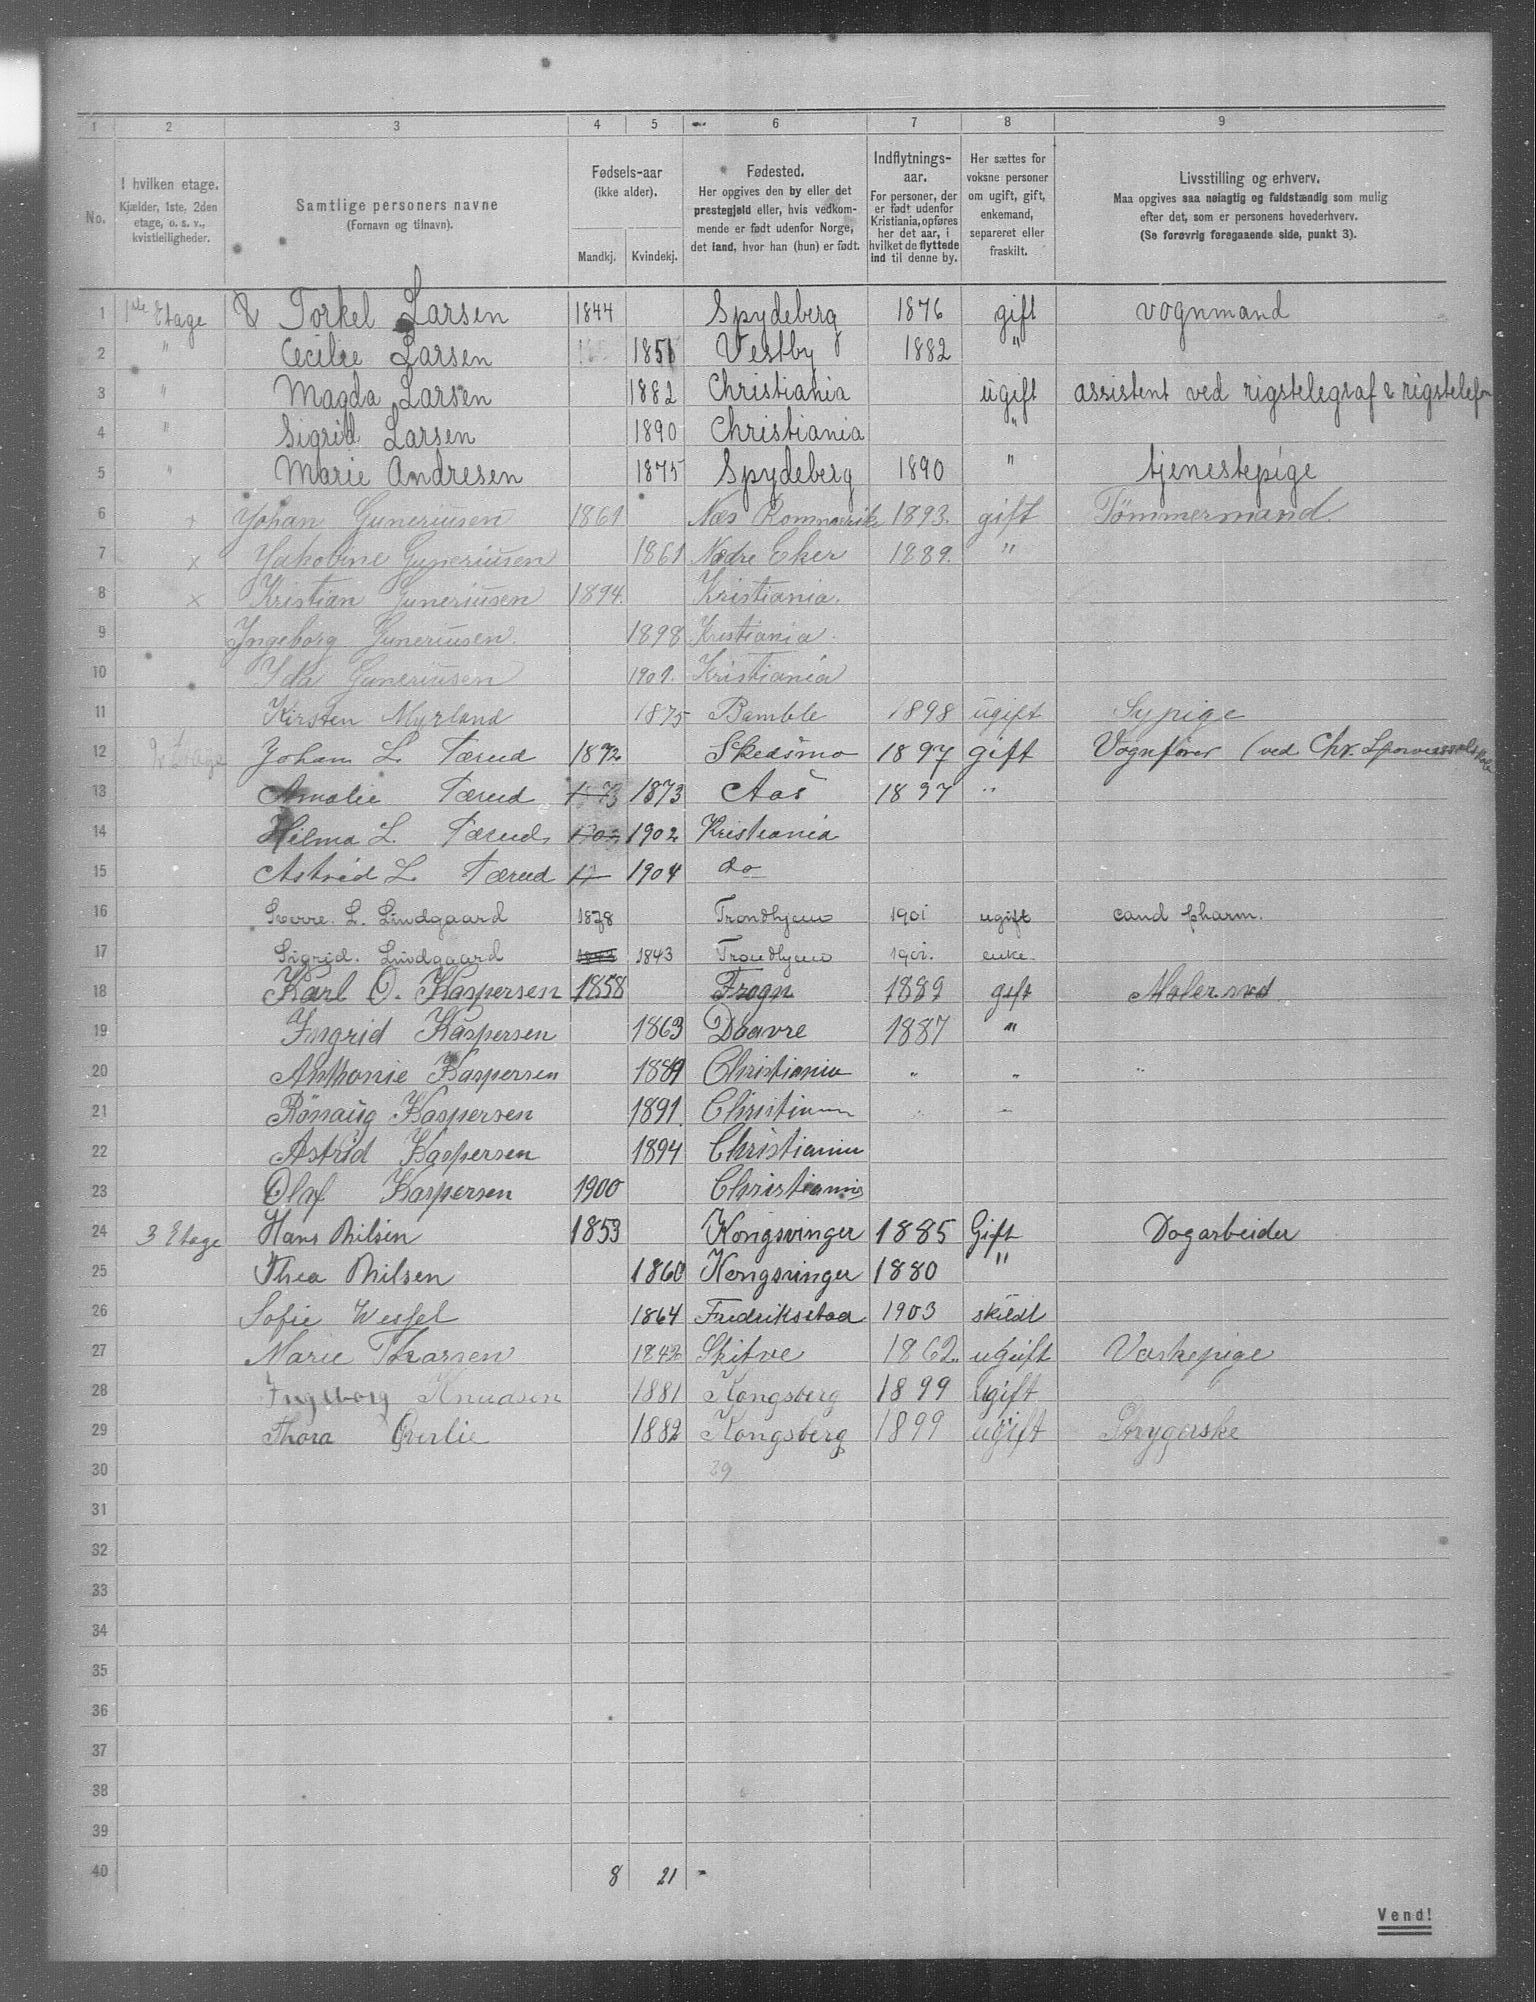 1 2 3 4 5 6 7 8 9
No. I hvilken etage. Kjælder, 1ste, 2den etage, o. s. v., kvistleiligheder. Samtlige personers navne (Fornavn og tilnavn). Fødsels-aar (ikke alder). Mandkj. Kvindekj. Fødested. Her opgives den by eller det prestegjeld eller, hvis vedkommende er født udenfor Norge, det land, hvor han (hun) er født. Indflytnings-aar. For personer, der er født udenfor Kristiania, opføres her det aar, i hvilket de flyttede ind til denne by. Her sættes for voksne personer om ugift, gift, enkemand, separeret eller fraskilt. Livsstilling og erhverv. Maa opgives saa nøiagtig og fuldstændig som mulig efter det, som er personens hovederhverv. (Se forøvrig foregaaende side, punkt 3).
1 1ste Etage & Torkel Larsen 1844 Spydeberg 1876 gift vognmand
2 " Cecilie Larsen 1851 Vestby 1882 "
3 " Magda Larsen 1882 Christiania ugift assistent ved rigstelegraf & rigstelefon
4 " Sigrid Larsen 1890 Christiania "
5 " Marie Andresen 1875 Spydeberg 1890 " tjenestepige
6 x Johan Guneriusen 1861 Næs Rommerike 1893. gift Tømmermand.
7 x Jakobine Guneriusen 1861 Nedre Eker 1889. "
8 x Kristian Guneriusen 1894. Kristiania.
9 Ingeborg Guneriusen. 1898 Kristiania.
10 Ida Guneriusen 1901. Kristiania
11 Kirsten Myrland 1875 Bamble 1898 ugift Sypige
12 2 Etage Johan L. Tærud 1872 Skedsmo 1897 gift Vognfører (ved Chr. Sporveisselskab
13 Amalie Tærud 1873 1873 Aas 1897 "
14 Hilma L. Tærud 1902 1902 Kristiania
15 Astrid L. Tærud 1904 do
16 Sverre. L. Lindgaard 1878 Trondhjem 1901 ugift cand pharm.
17 Sigrid. Lindgaard 1843 1843 Trondhjem 1901. enke.
18 Karl O. Kaspersen 1858 Frogn 1889 gift Malersvd
19 Ingrid Kaspersen 1863 Daavre 1887 "
20 Anthonie Kaspersen 1889 Christiania " " "
21 Rönaug Kaspersen 1891. Christiania " "
22 Astrid Kaspersen 1894 Christiania
23 Olaf Kaspersen 1900 Christiania
24 3 Etage Hans Nilsen 1853 Kongsvinger 1885 Gift Dogarbeider
25 Thea Nilsen 1860 Kongsvinger 1880 "
26 Sofie Wessel 1864 Fredriksstad 1903 skildt
27 Marie Thoresen 1842 Skitve 1862. ugift Vaskepige
28 Ingeborg Knudsen 1881 Kongsberg 1899 Ugift
29 Thora 1882 Kongsberg 1899 ugift Strygerske
30 29
31
32
33
34
35
36
37
38
39
40 8 21 -
Vend!